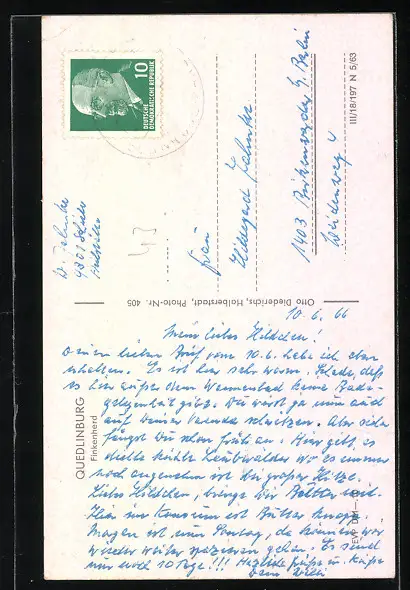 10
DEUTSCHE
DEMOKRATISCHE REPUBLIK
43
Frau
Hildegard Jahnke
1403 Birkenwerder b. Berlin
Weidenweg 4
III/18/197 N 5/63
W. Jahnke
Otto Diederichs, Halberstadt, Photo-Nr. 405
QUEDLINBURG
Finkenherd
10.6.66
Mein liebes Hildchen!
Deinen lieben Brief vom 10.6. habe ich eben
erhalten. Es ist hier sehr warm. Schade, daß
es hier außer dem Wannenbad keine Bade-
gelegenheit gibt. Du wirst ja nun auch
auf Deiner Veranda schwitzen. Aber
fängst Du schon früh an. Hier gibt es
viele kühle Laubwälder wo es immer
noch angenehm ist bei großer Hitze.
Liebes Hildchen, bringe Dir Butter mit.
Hier im Konsum ist Butter knapp.
Morgen ist nun Sonntag, da können wir
wieder weiter spazieren gehen. Es sind
nur noch 10 Tage!!! Herzliche Grüße u. Küsse
Dein Willi
EVP DM